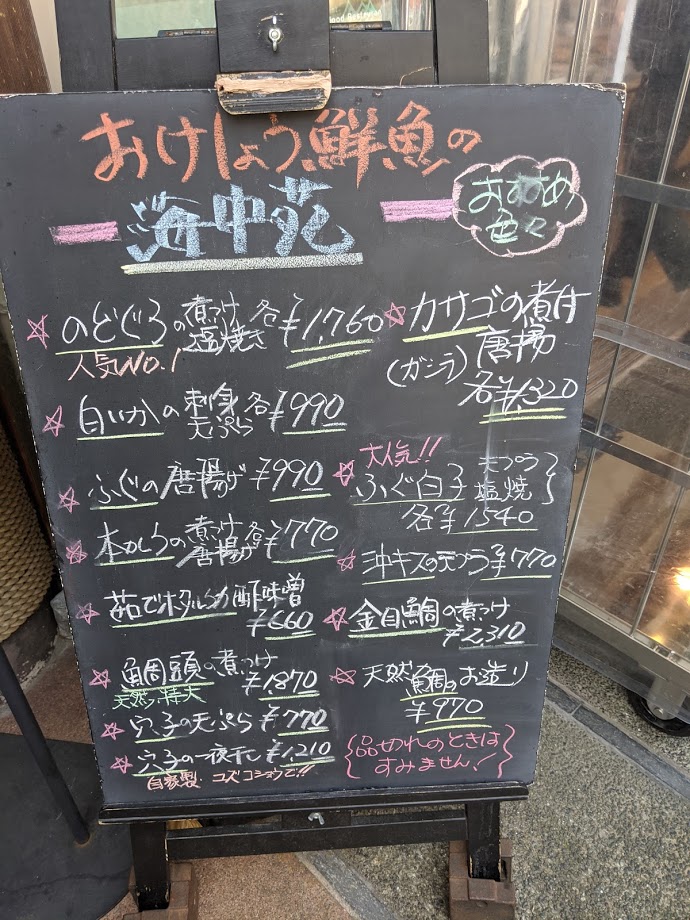 おけしょう鮮魚の
海中苑
おすすめ
色々
のどぐろの煮つけ 塩焼き 各¥1,760
人気NO.1
白いかの刺身 天ぷら 各¥990
ふぐの唐揚げ ¥990
本かれいの煮つけ 唐揚げ 各¥770
茹でホタルイカ酢味噌
¥660
鯛頭の煮つけ
天然!特大 ¥1,870
穴子の天ぷら ¥770
穴子の一夜干し ¥1,210
自家製 ユズコショウで!!
カサゴの煮付
(ガシラ) 唐揚
各¥1,320
大人気!!
ふぐ白子 天プラ 塩焼
各¥1540
沖キスの天プラ ¥770
金目鯛の煮つけ
¥2,310
天然鯛のお造り
¥970
品切れのときは
すみません!